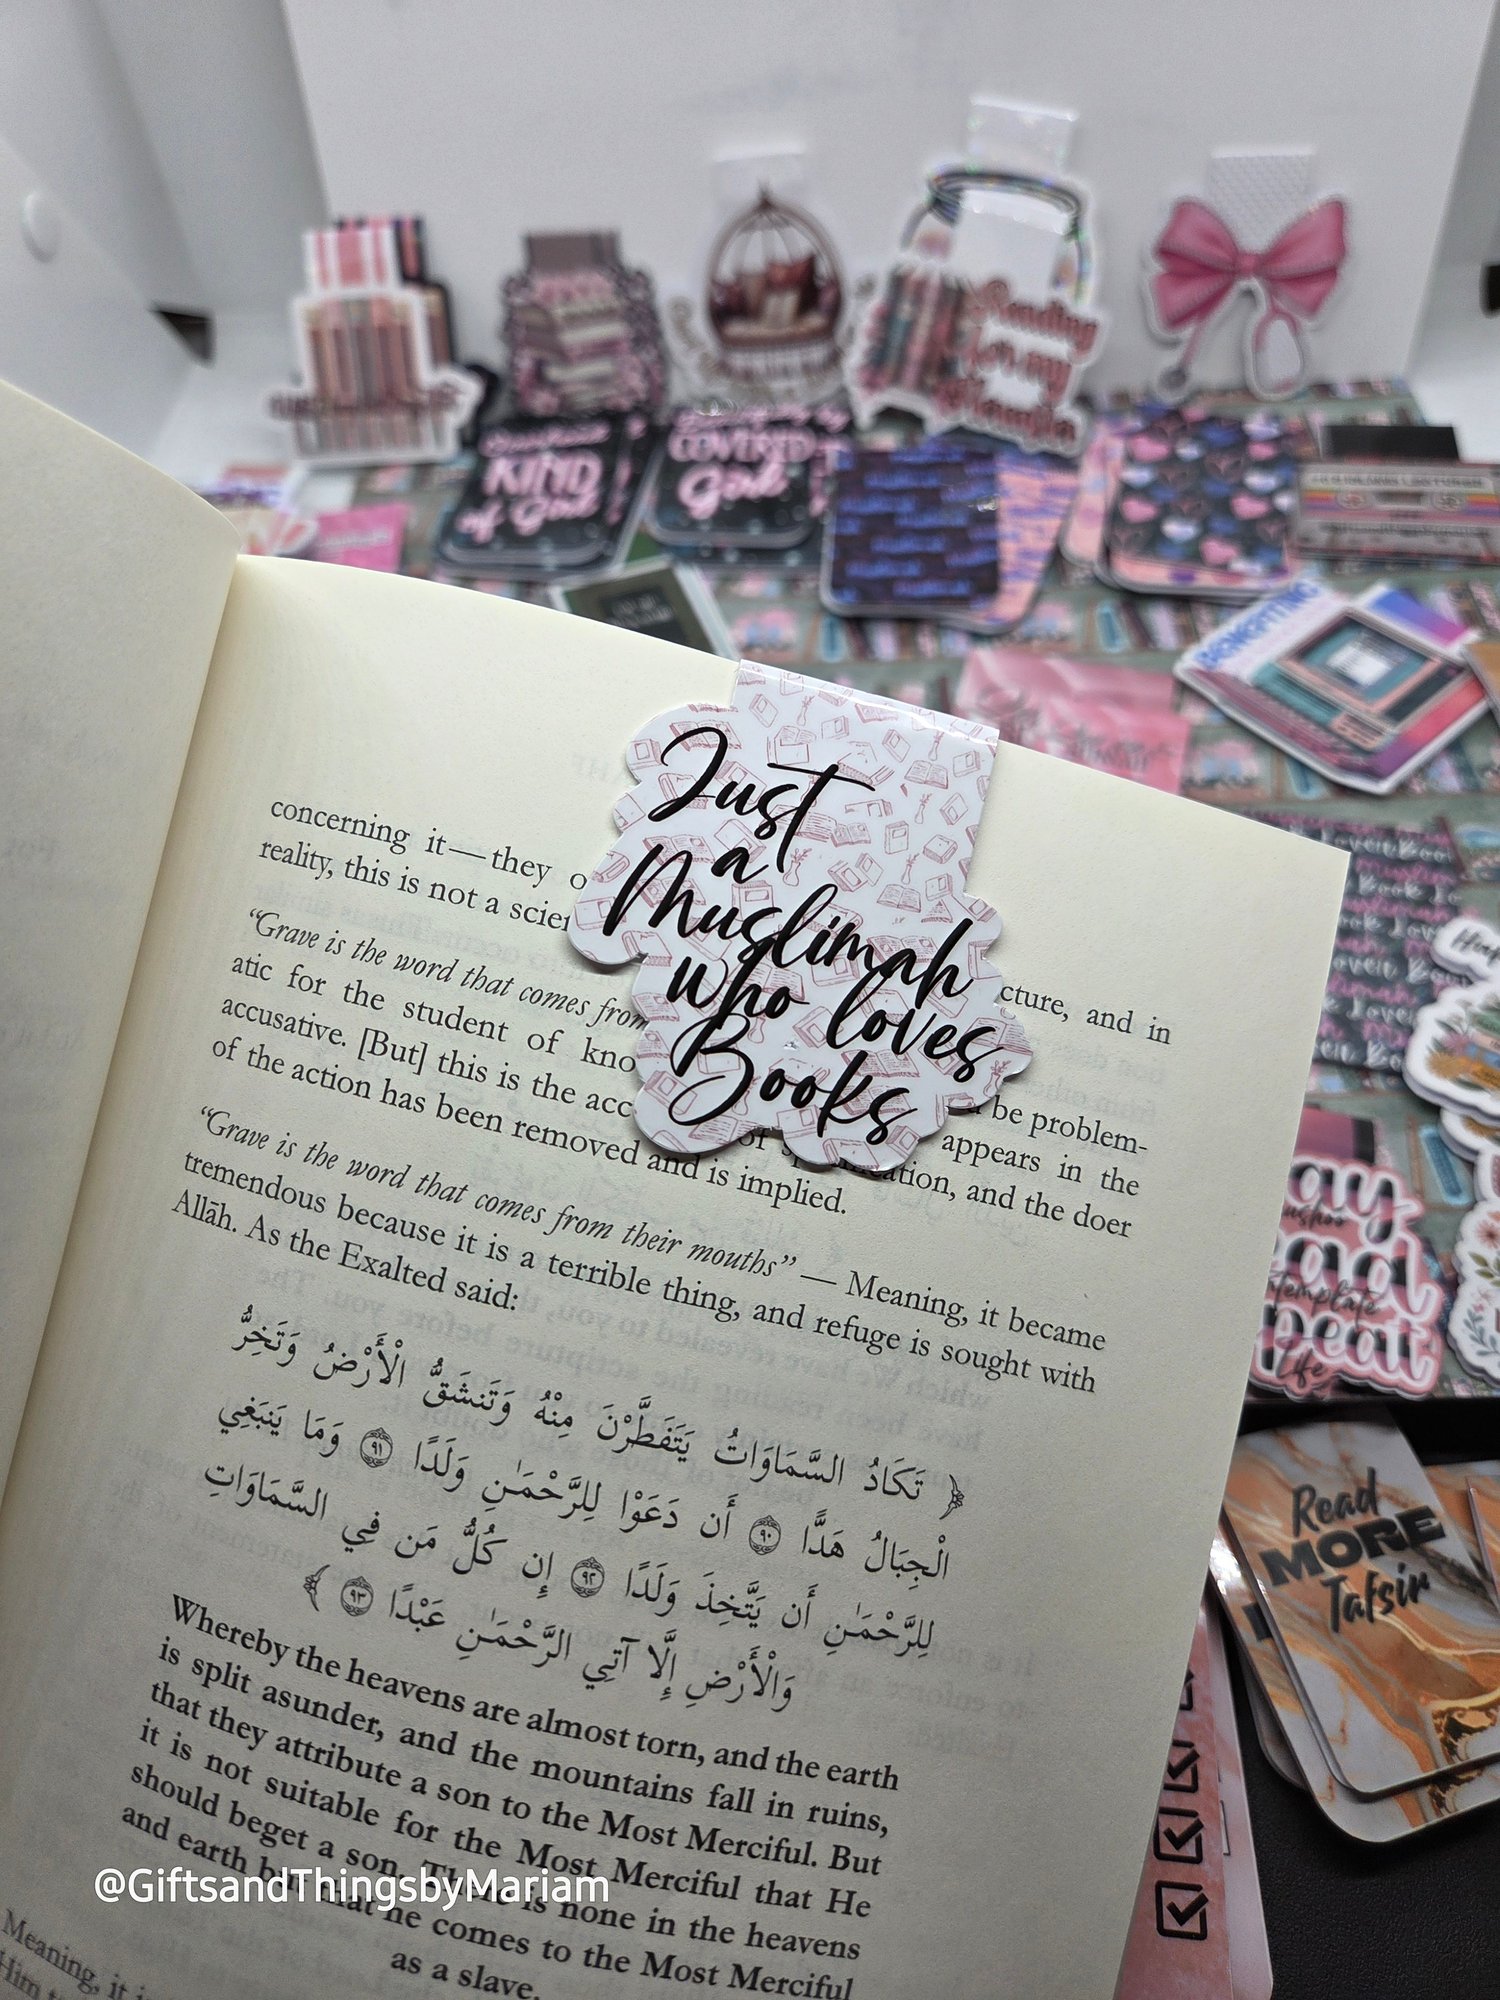 Reading
for my
KIND
of Girl
COVERED
Girl
BENEFITING
Just
a
Muslimah
who loves
Books
concerning it — they
reality, this is not a
cture, and in
“Grave is the word that comes from
be problem-
atic for the student of
appears in the
accusative. [But] this is the
ation, and the doer
of the action has been removed and is implied.
“Grave is the word that comes from their mouths” — Meaning, it became
tremendous because it is a terrible thing, and refuge is sought with
Allāh. As the Exalted said:
﴿ تَكَادُ السَّمَاوَاتُ يَتَفَطَّرْنَ مِنْهُ وَتَنشَقُّ الْأَرْضُ وَتَخِرُّ
الْجِبَالُ هَدًّا ٩٠ أَن دَعَوْا لِلرَّحْمَـٰنِ وَلَدًا ٩١ وَمَا يَنبَغِي
لِلرَّحْمَـٰنِ أَن يَتَّخِذَ وَلَدًا ٩٢ إِن كُلُّ مَن فِي السَّمَاوَاتِ
وَالْأَرْضِ إِلَّا آتِي الرَّحْمَـٰنِ عَبْدًا ٩٣ ﴾
Whereby the heavens are almost torn, and the earth
is split asunder, and the mountains fall in ruins,
that they attribute a son to the Most Merciful. But
it is not suitable for the Most Merciful that He
should beget a son. There is none in the heavens
and earth but that he comes to the Most Merciful
as a slave.
Meaning, it
Read
MORE
Tafsir
Life
@GiftsandThingsbyMariam